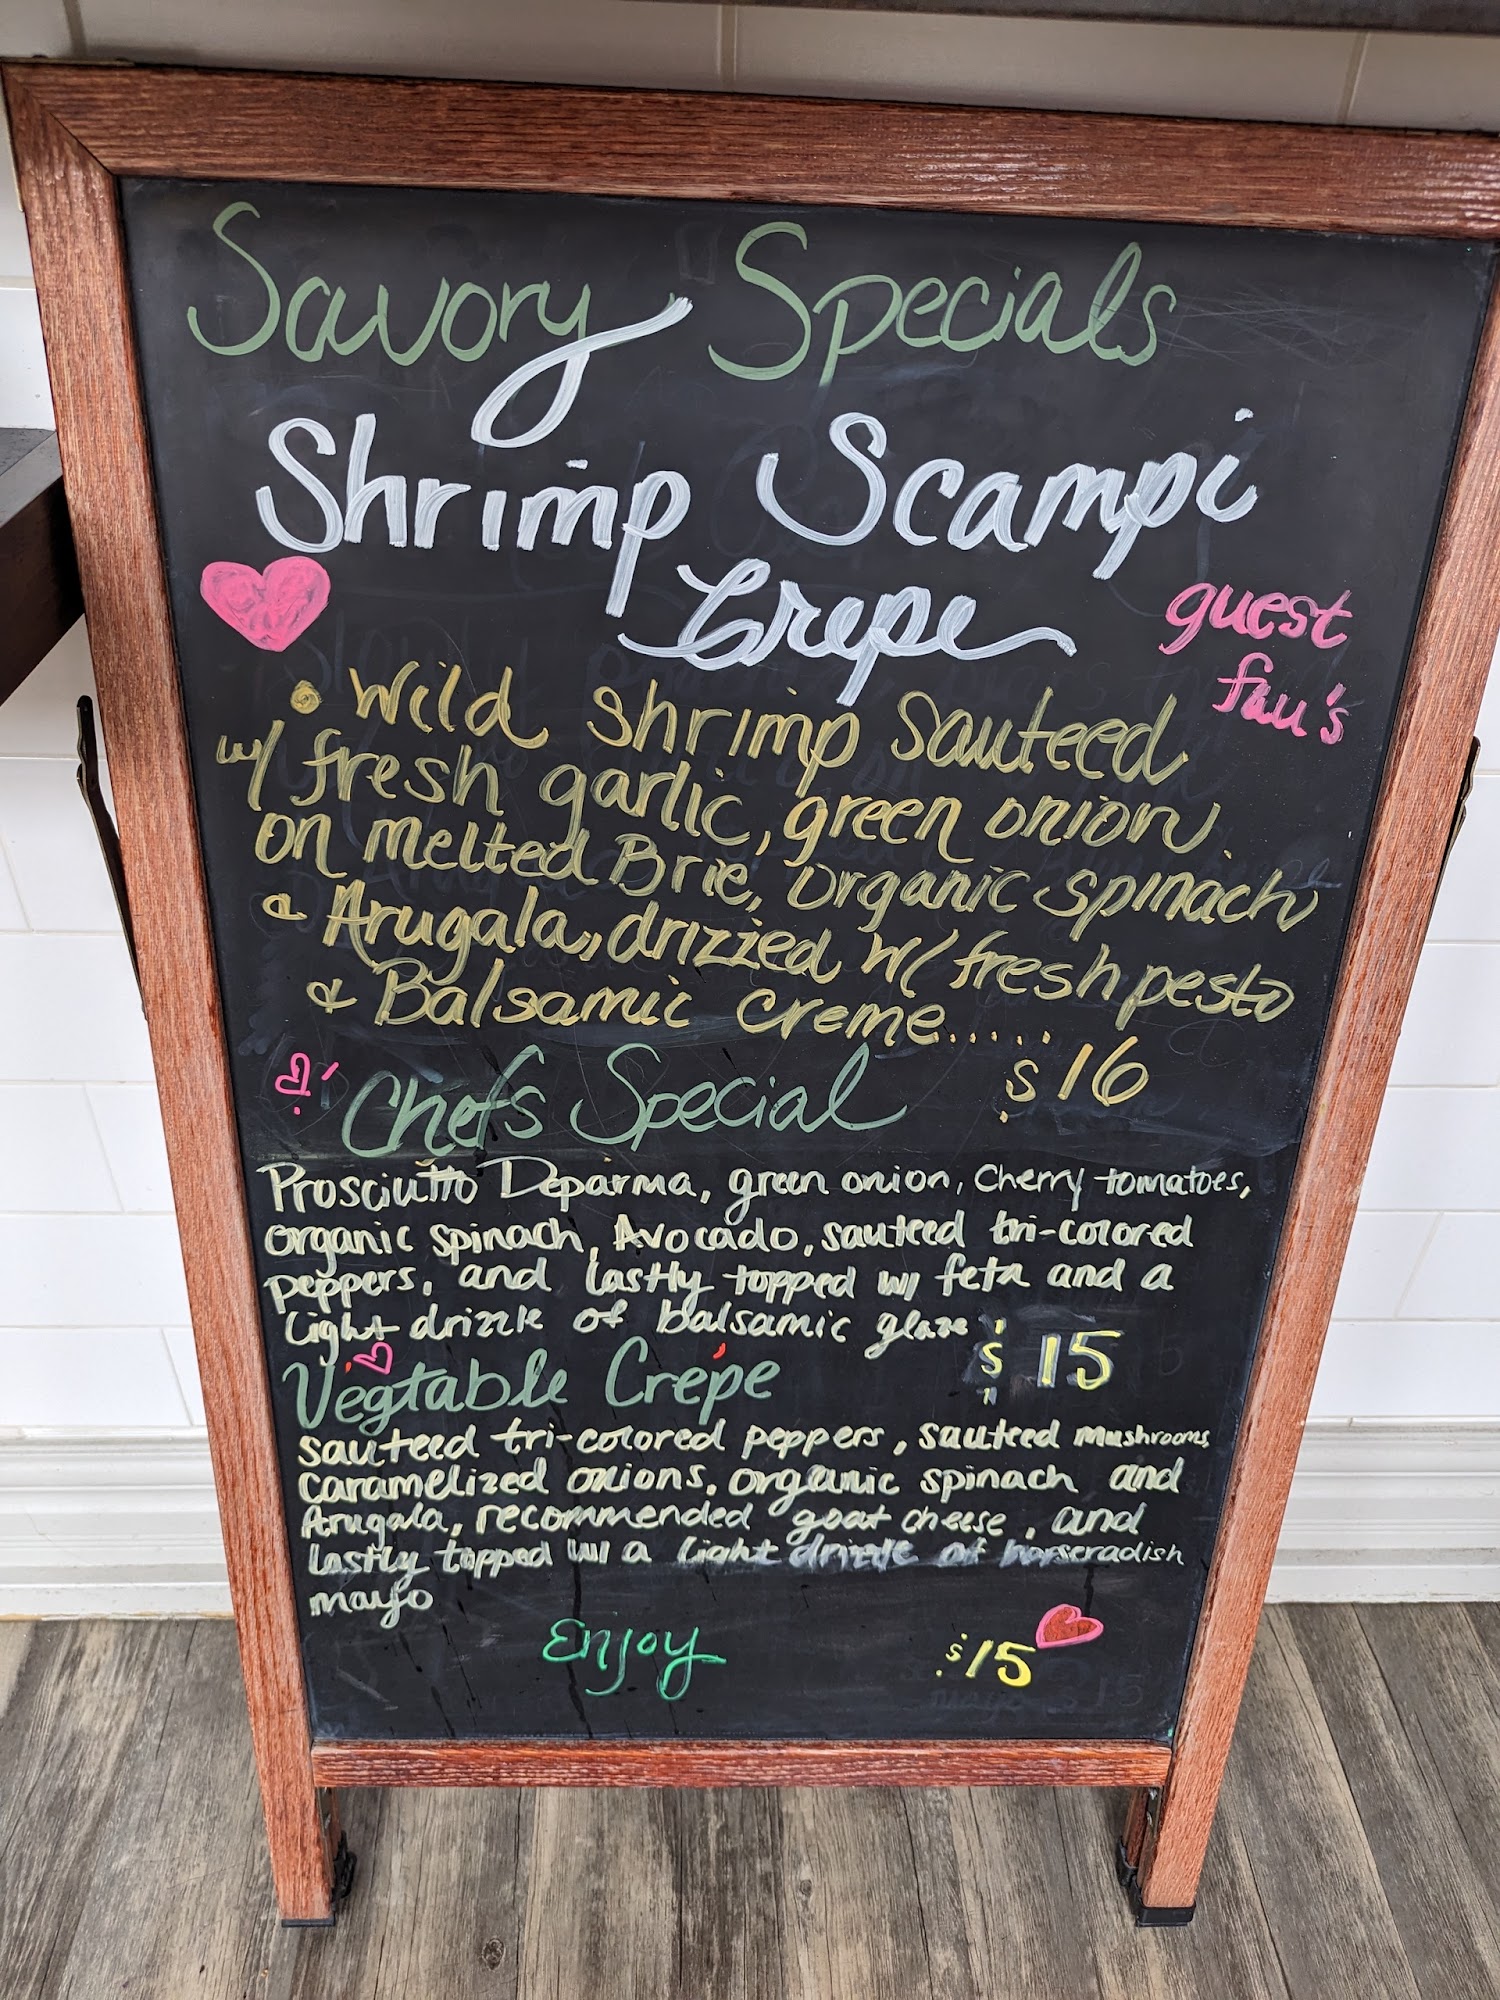 Savory Specials
Shrimp Scampi
Crepe
guest
fav's
• Wild shrimp sauteed
w/ fresh garlic, green onion
on melted Brie, organic spinach
& Arugala, drizzed w/ fresh pesto
& Balsamic creme.....
$16
Chefs Special
Prosciutto Deparma, green onion, cherry tomatoes,
organic spinach, Avocado, sauteed tri-colored
peppers, and lastly topped w/ feta and a
light drizzle of balsamic glaze
$15
Vegtable Crepe
sauteed tri-colored peppers, sauteed mushrooms
caramelized onions, organic spinach and
Arugala, recommended goat cheese, and
lastly topped w/ a light drizzle of horseradish
mayo
Enjoy
$15